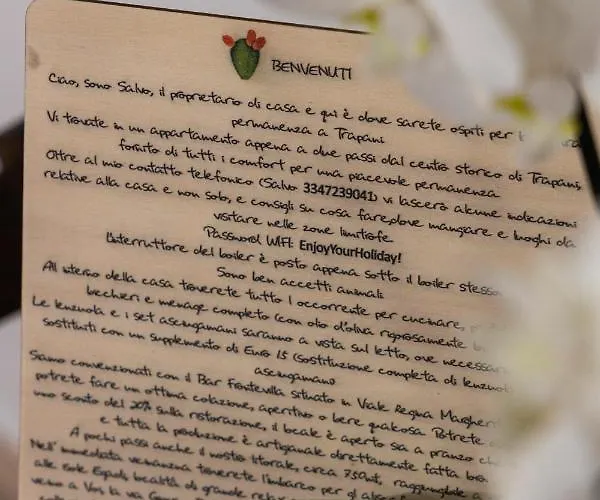 BENVENUTI
Ciao, sono Salvo, il proprietario di casa e qui è dove sarete ospiti per
permanenza a Trapani
Vi trovate in un appartamento appena a due passi dal centro storico di Trapani,
fornito di tutti i comfort per una piacevole permanenza
Oltre al mio contatto telefonico (Salvo 3347239041) vi lascerò alcune indicazioni
relative alla casa e non solo, e consigli su cosa fare,dove mangiare e luoghi da
visitare nelle zone limitrofe
Password WIFI: EnjoyYourHoliday!
L'interruttore del boiler è posto appena sotto il boiler stesso
Sono ben accetti animali
All interno della casa troverete tutto l occorrente per cucinare,
bicchieri e menage completo (con olio d'oliva rigorosamente
Le lenzuola e i set asciugamani saranno a vista sul letto, ove necessar
sostituiti con un supplemento di Euro 15 (Sostituzione completa di lenzuol
asciugamano
Siamo convenzionati con il Bar Fontevilla situato in Viale Regina Margher
potrete fare un ottima colazione, aperitivo o bere qualcosa Potrete
uno sconto del 20% sulla ristorazione, il locale è aperto sia a pranzo che
e tutta la produzione è artigianale direttamente fatta
A pochi passi anche il nostro litorale, circa 750mt, raggiungibile a
Nell' immediata vicinanza troverete l'imbarco per gli
alle Isole Egadi, località di grande relax